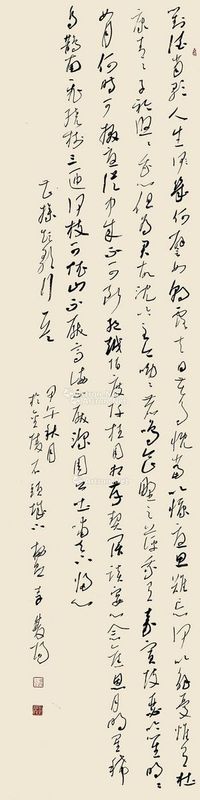 對酒當歌人生幾何譬如朝露去日苦多慨當以慷憂思難忘何以解憂惟有杜
康青々子衿悠々我心但為君故沉吟至今呦々鹿鳴食野之苹我有嘉賓鼓瑟吹笙明々
如月何時可掇憂從中來不可斷絕越陌度阡枉用相存契闊談讌心念舊恩月明星稀
烏鵲南飛繞樹三匝何枝可依山不厭高海不厭深周公吐哺天下歸心
曹操短歌行一首
甲午秋月
於金陵石頭城下